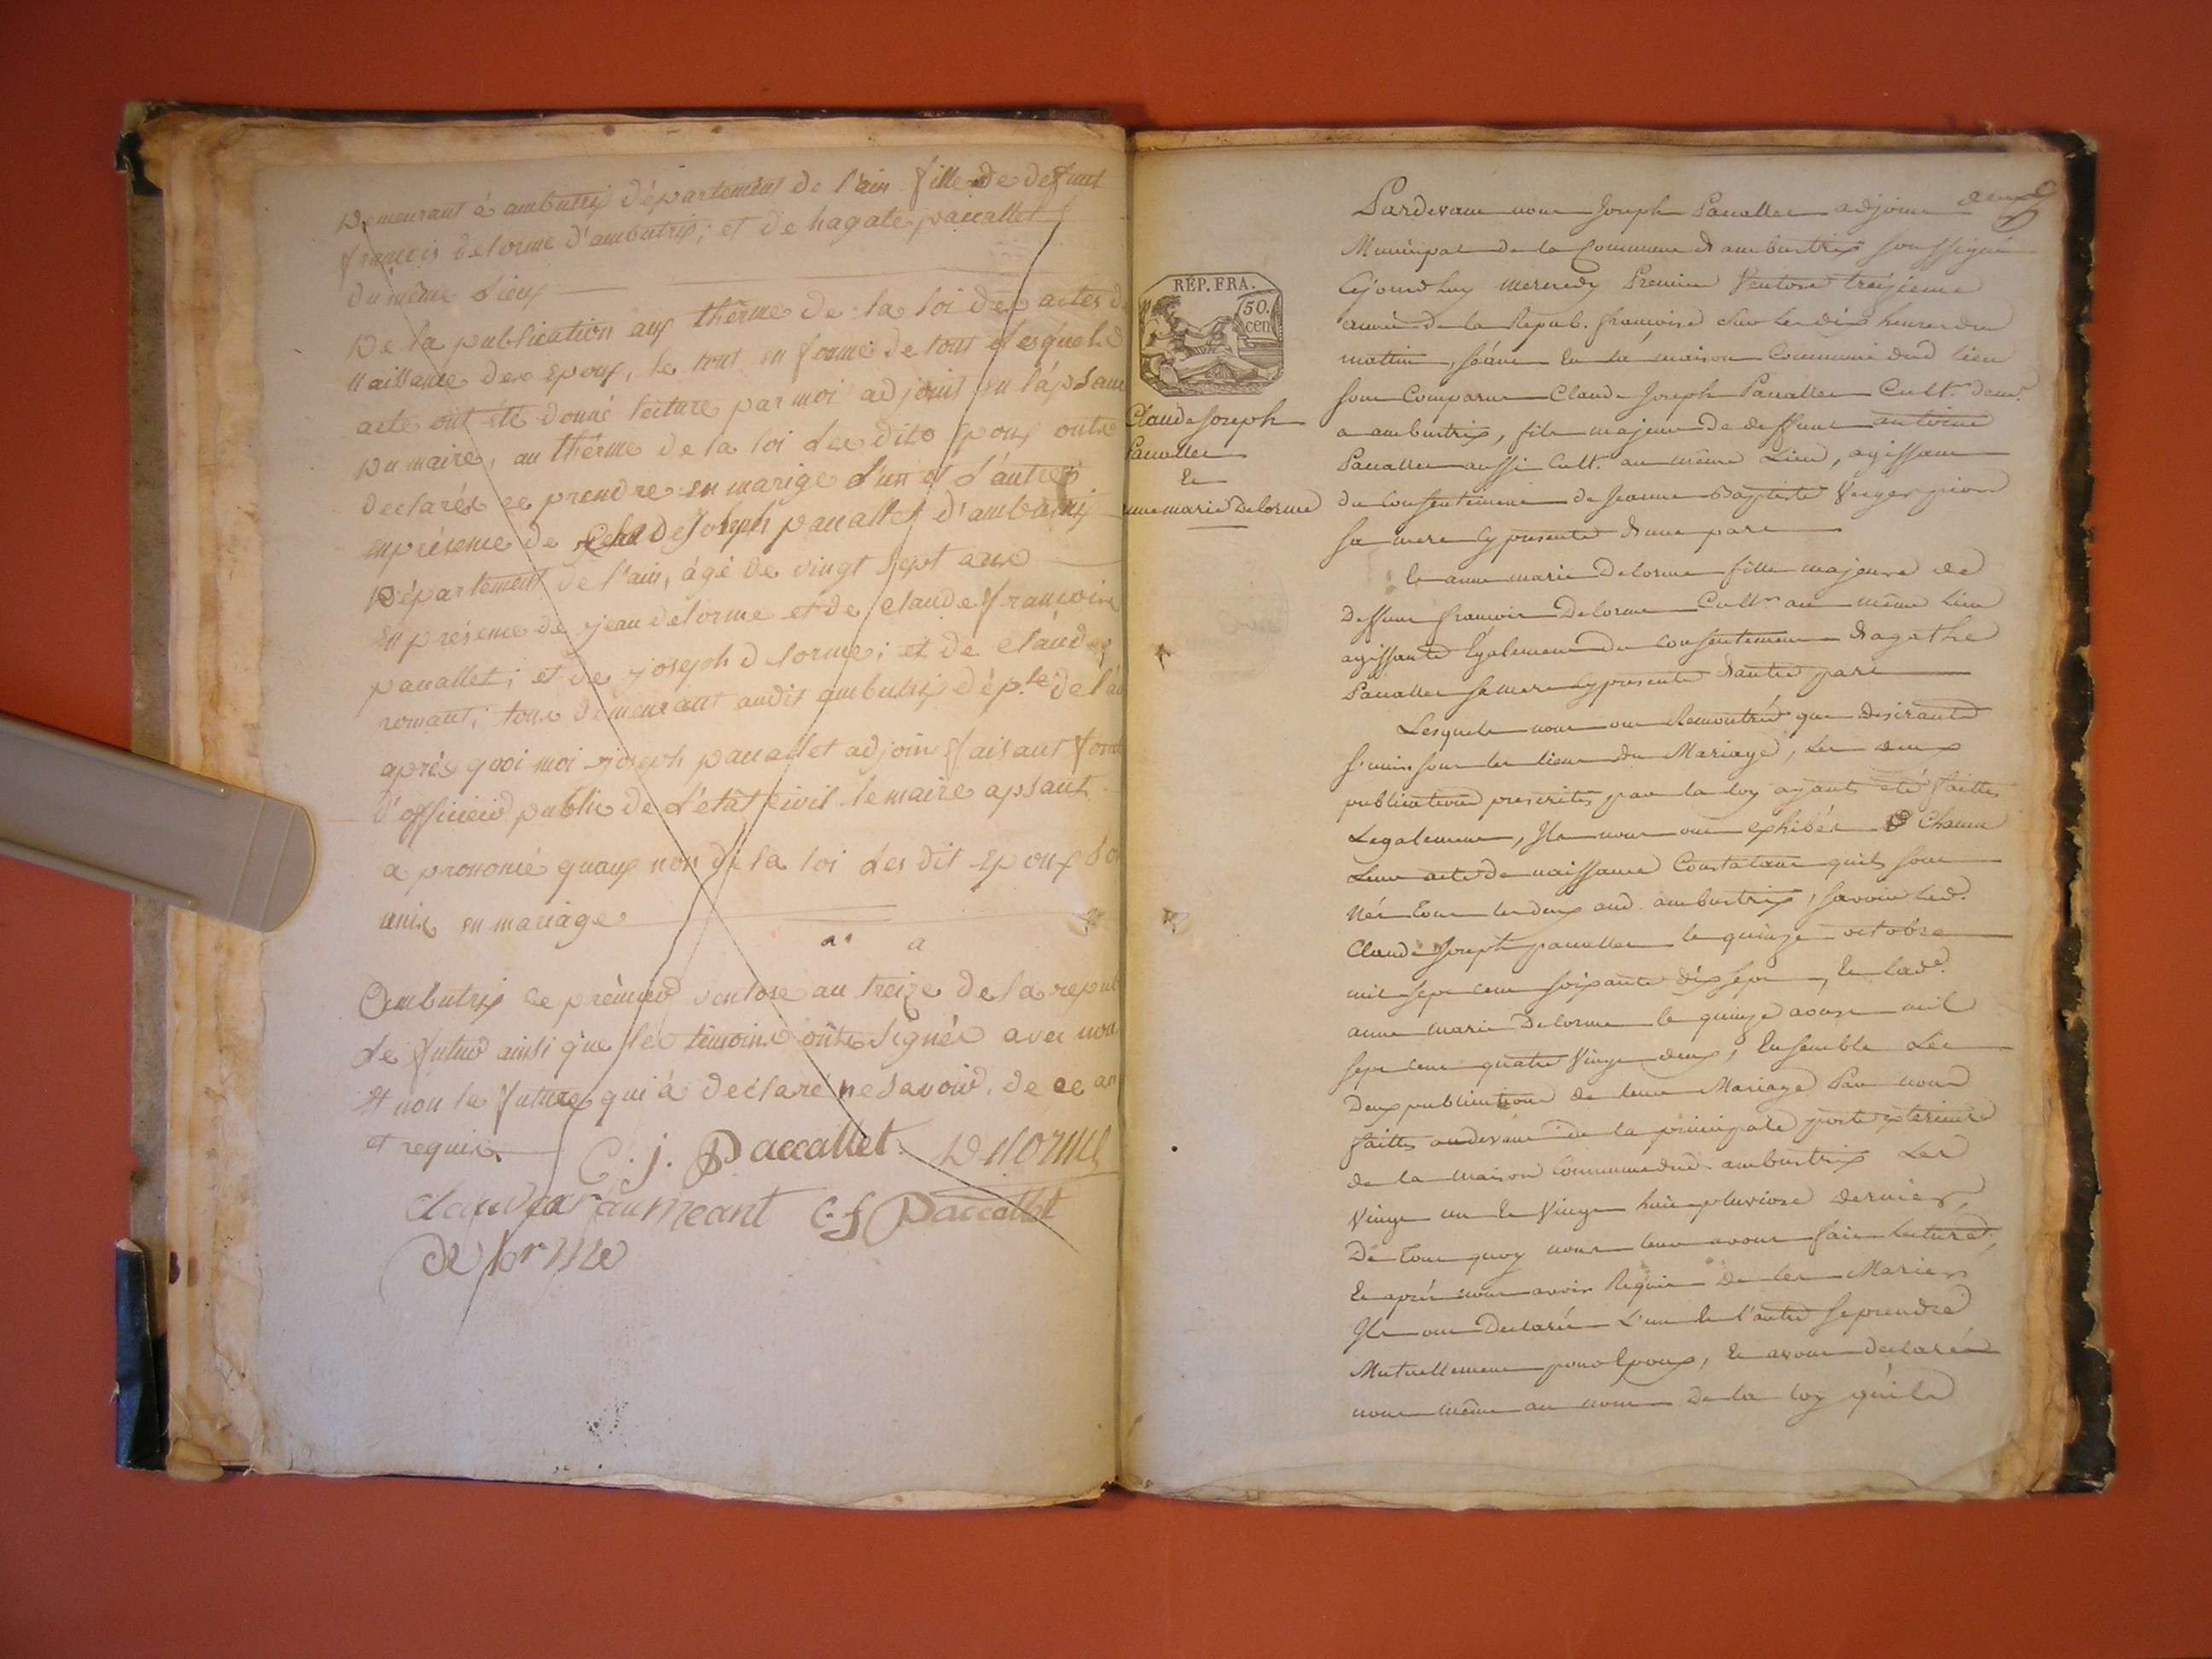 Demeurant à ambutrix département de l'ain fille de defunt
françois delorme d'ambutrix; et de hagate paccallet
du même Lieux
De la publication aux thérme de la loi des actes d
naissance des epoux, le tout en forme de tout lesquels
acte ont été donné lecture par moi adjoint en l'apsance
Du maire, au thérme de la loi Les dits Epoux onts
declarés se prendre en marige l'un et l'autres
en présence de Claude Joseph pacallet d'ambutrix
Département de l'ain, âgé de vingt sept ans
en présence de jean delorme et de claude françois
pacallet; et de joseph delorme; et de claude
romant; tous demeurant audit ambutrix dép.te de l'ain
après quoi moi joseph pacallet adjoint faisant fonct
d'officier public de L'etât civil le maire apsant
a prononcé quaux non de la loi Les dit Epoux son
unis en mariage
a
Ambutrix le prèmier ventose an treize de la repub
Le futur ainsi que les tèmoins onts signés avec nou
Et non la future qui à declaré ne savoir, de ce an
et requis. C. j. Paccallet Delorme
claude raumeant C. f Paccallet
delorme
deux
Pardevant nous Joseph Pacallet adjoint
Municipal de la Commune d'ambutrix soussigné
Cejourdhuy mercredy Premier Ventose treizieme
année de la Répub. françoise sur les dix heures du
mattin, séant En la maison Commune dud lieu
RÉP. FRA.
50.
cen
sont Comparus Claude Joseph Pacallet Cult.r dem.t
Claude Joseph
a ambutrix, fils majeur de deffunt antoine
Pacallet
Pacallet aussi Cult. au même Lieu, agissant
Et
du Consentement de Jeanne Baptiste
anne marie Delorme
sa mere Cy presente d'une part
Et anne marie Delorme fille majeure de
deffunt françois Delorme Cult.r au même lieu
agissante Egalement du consentement d'agathe
Pacallet sa mere Cy presente d'autre part
Lesquels nous ont Remontré que desirants
s'unir sous les liens du Mariage, les deux
publications prescrites par la loy ayants eté faittes
Legalement, Ils nous ont exhibés Chacun
Leur acte de naissance Constatant quils sont
Nés tous les deux aud. ambutrix, savoir led.
Claude Joseph pacallet le quinze octobre
mil sept cent soixante dix sept, Et lad.e
anne marie Delorme le quinze aoust mil
sept cent quatre Vingt deux, Ensemble Les
deux publications de leur Mariage Par nous
faittes audevant de la principale porte exterieure
de la maison Commune dud. ambutrix Les
Vingt un Et Vingt huit pluviose dernier,
De tout quoy nous leur avons fait lecture,
Et après nous avoir Requis de les Marier
Ils ont Declarés L'un Et l'autre se prendre
Mutuellement pour Epoux, Et avons declarés
nous même au nom De la loy qu'ils